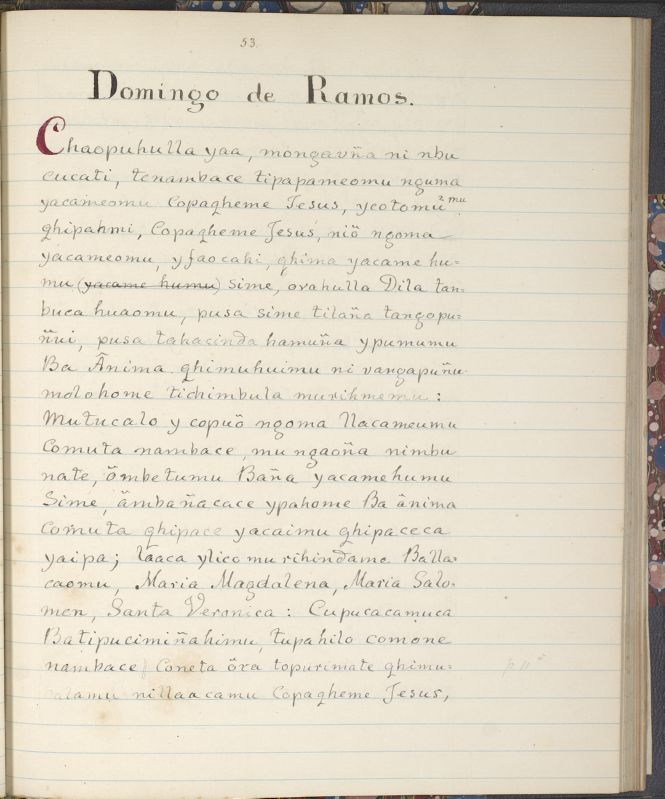 53.
Domingo de Ramos.
Chaopuhulla yaa, mongavña ni nbu
cucati, tenambace tipapameomu nguma
yacameomu Copaqheme Jesus, ycotomû 2 mu
qhipahmi, Copaqheme Jesus, niŏ ngoma
yacameomu, y fao cahi, qhima yacame hu=
mu (yacame humu) sime, òvahulla Dila tan=
buca huaomu, pusa sime tilaña tangopu=
ñui, pusa tahacinda hamuña ypumumu
Ba Ânima qhimuhuimu ni vangapuñu
molohome tichimbula murihmemu:
Mutucalo y copuŏ ngoma llacameumu
Comuta nambace, mu ngaoña nimbu
nate, ŏmbetumu Baña yacamehumu
Sime, âmbañacace ypahome Ba ânima
Comuta qhipace yacaimu qhipaceca
yaipa; taaca ylico mu rihindamo Balla=
caomu, Maria Magdalena, Maria Salo=
men, Santa Veronica: Cupucacamuca
Batipucimiñahimu, tupahilo comone
nambace Coneta ŏra topurimate qhimu=
calamu nillaacamu Copaqheme Jesus,